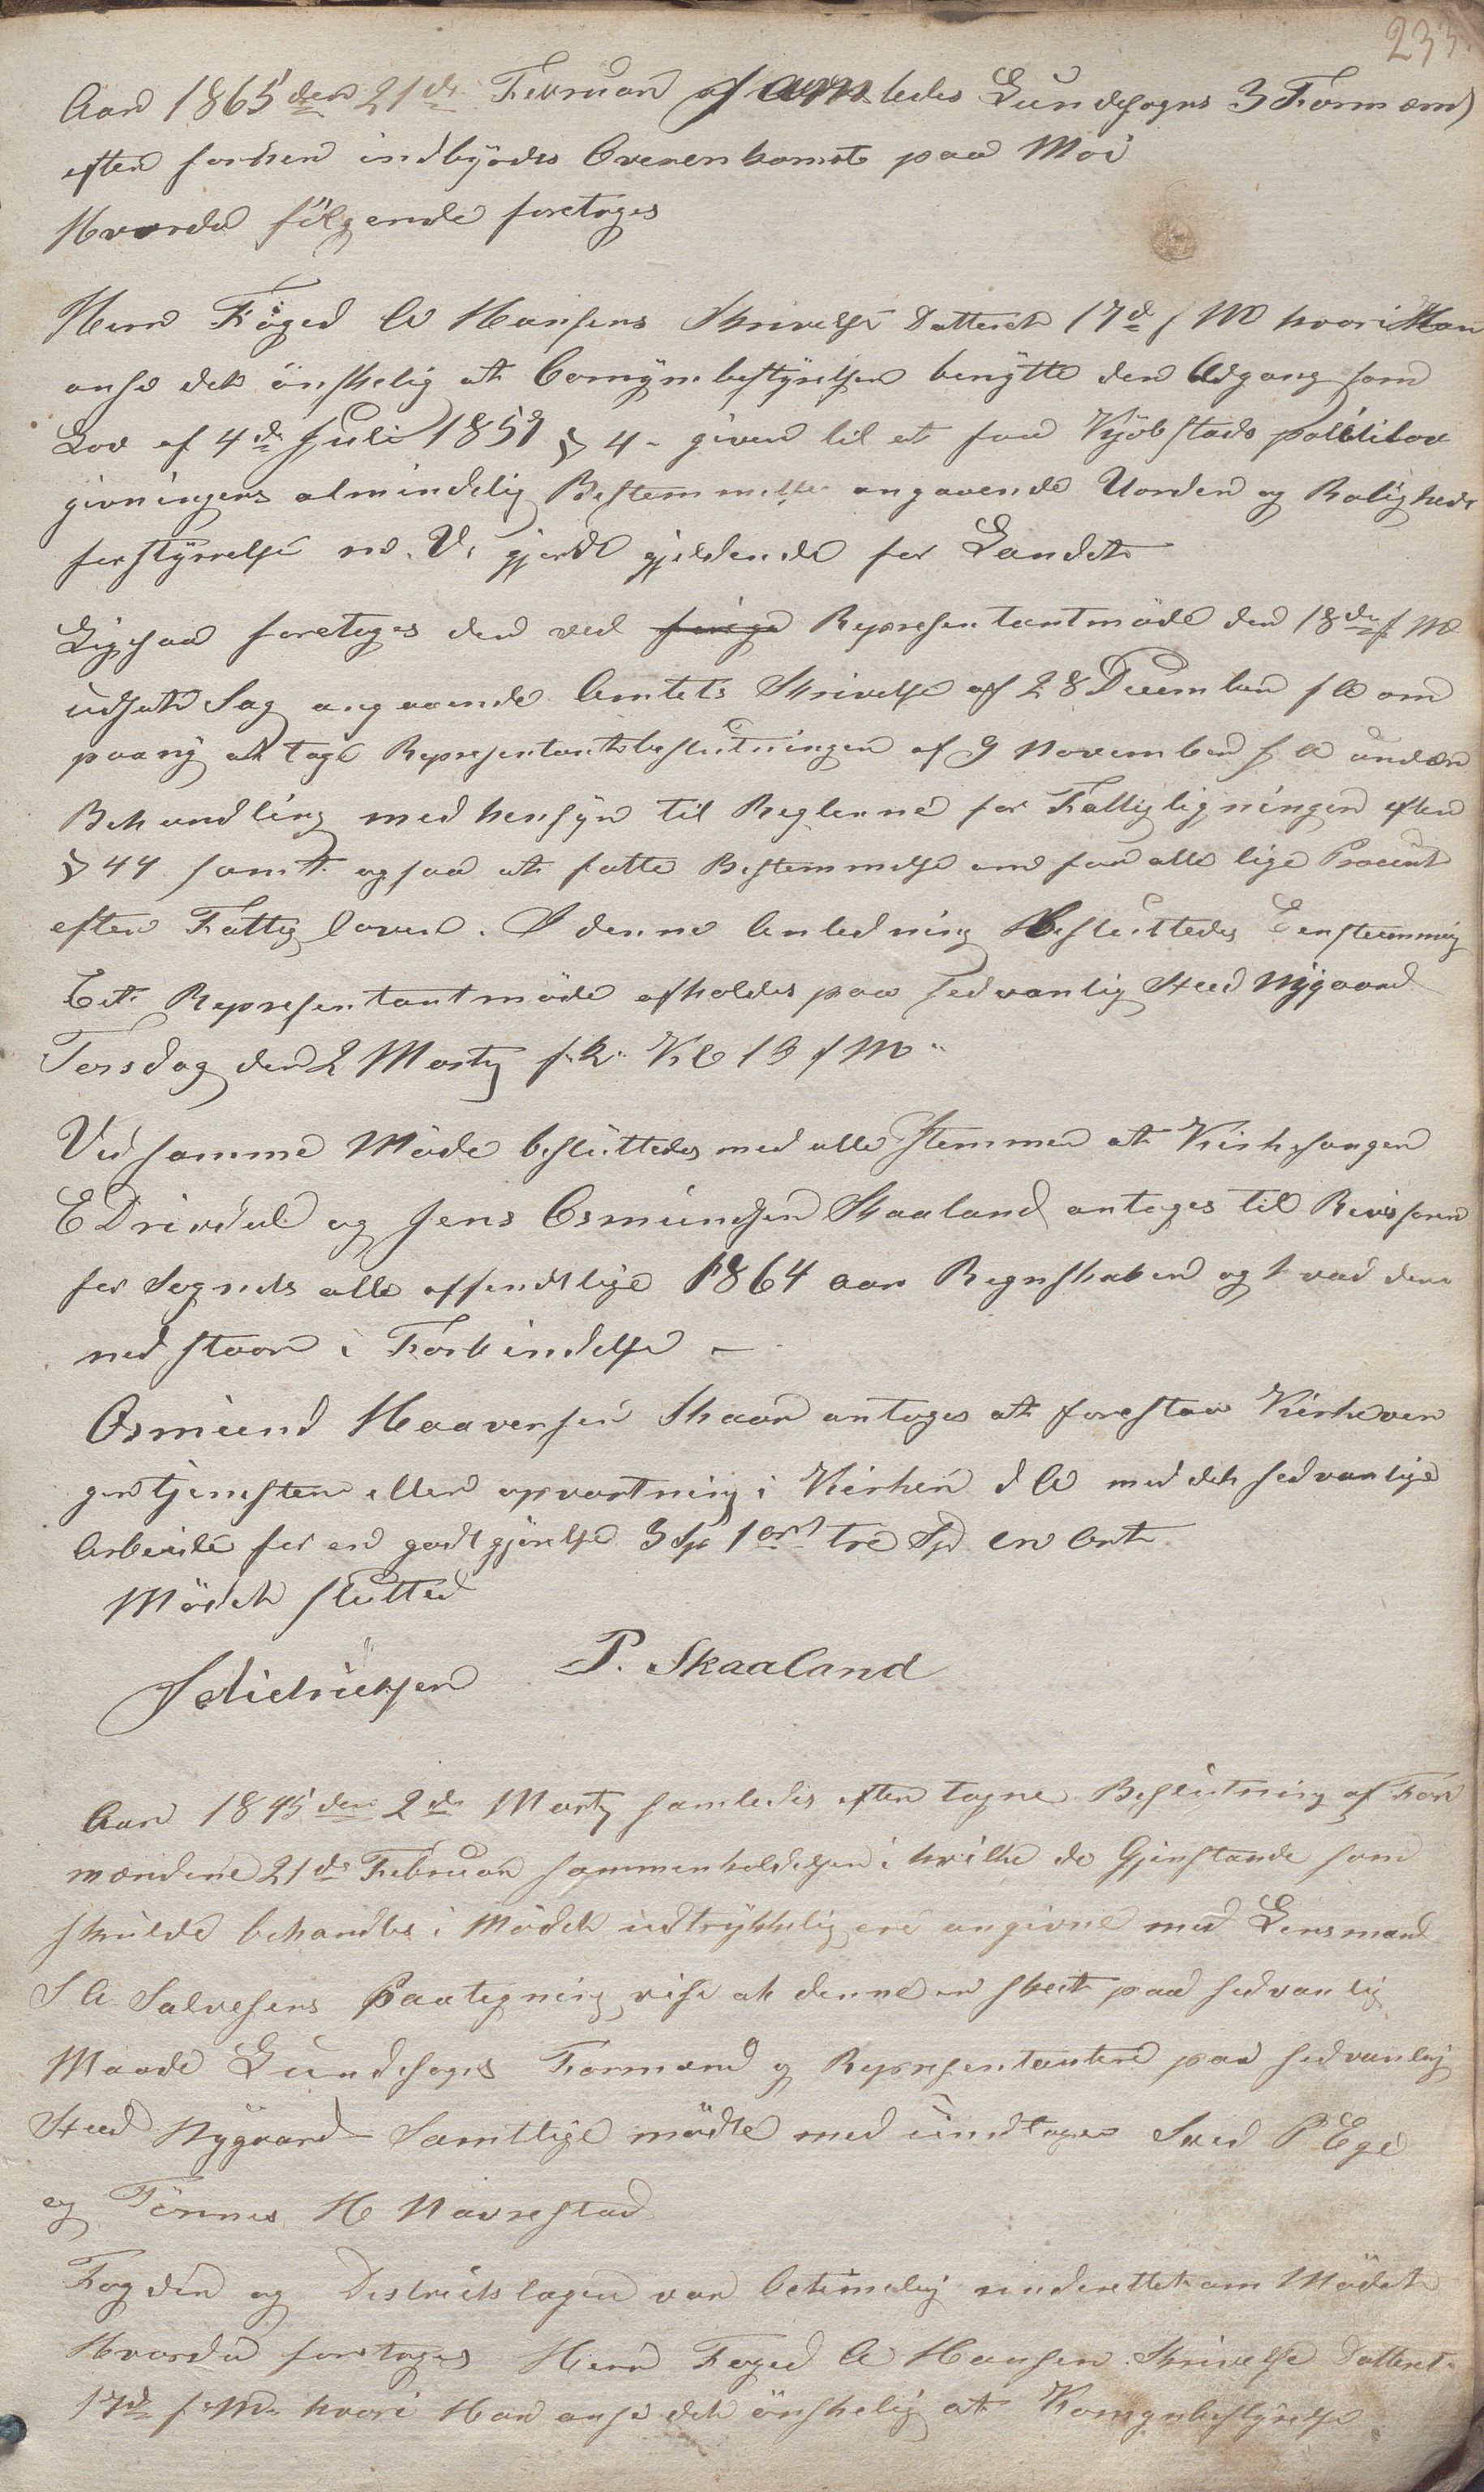 233.
Aar 1865 den 21de Februar samledes Lundesogns 3 Formænd
efter forhen indbyrdes Overenkomst paa Moi
Hvorda følgende foretoges
Herr Foged A Hansens Skrivelse Datteret 17de f M hvori Han
anse det ønskelig at Comynbestyrelsen benytte den Adgang som
Lov af 4de Juli 1857 § 4 - giver til at faa Kjøbstads politilov
givningens almindelig Bestemmelse angaaende Uorden og Roligheds
forstyrrelse m. V. gjordt gjeldende for Landet
Ligesaa foretoges den ved forige Representantmøde den 18de f M
udsatte Sag angaaende Amtets Skrivelse af 28 December f A om
paany at tage Representantbeslutningen af 9 November f A under
Behandling med hensyn til Reglerne for Fattigligningen efter
§ 44 samt ogsaa at fatte Bestemmelse om for alle lige Procent
efter Fattigloven. I denne Anledning Besluttedes Eenstemmig
Et Representantmøde afholdes paa sedvanlig Sted Nygaard
Torsdag den 2 Marty f. k. Kl 13 f M
Ved samme Møde besluttedes med alle Stemmer at Kirkesanger
E Drivdal og Jens Osmundsen Skaaland antoges til Revisorer
for Sognets alle offendtlige 1864 aar Regnskaber og hvad der
med staar i Forbindelse -
Osmund Haaversen Skaar antoges at forestaa Kirkever
gertjenesten eller opvartning i Kirken d A med det sedvanlige
Arbeide for en godtgjørelse 3 Sp 1 ort tre Sp en Ort
Mødet sluttet
J Didriksen P. Skaaland
Aar 1845 den 2de Marty samledes efter tagne Beslutning af For
mændene 21de Februar sammenholdelsen i hvilke de Gjenstande som
skulde behandles i Mødet udtrykkelig ere angivne med Lensmand
S A Salvesens Paategning vise at denne er skeet paa sedvanlig
Maade Lundesogns Formænd og Representantere paa sedvanlig
Sted Nygaard Samtlige mødte med undtagen Sved P Ege
og Tønnes H Navrestad
Fogden og Districtslagen var betimelig underettet om Mødet
Hvorda foretoges Herr Foged A Hansen Skrivelse Datteret
17de f M hvori Han anse det ønskelig at Komynbestyrelse